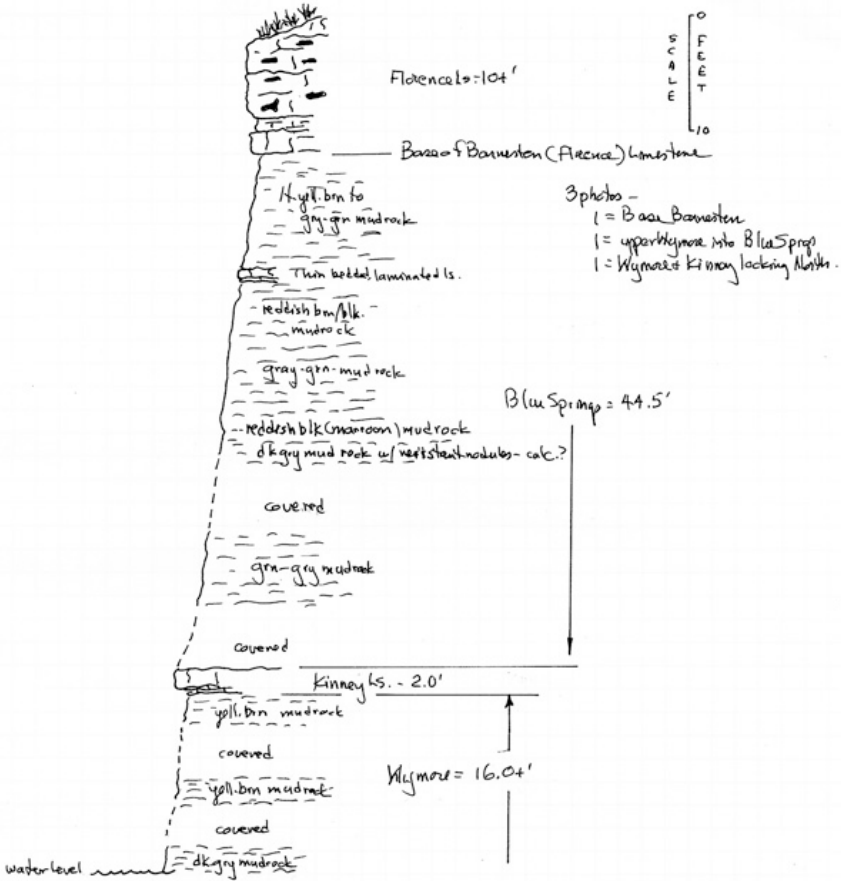 0
SCALE
FEET
10
Florence Ls. 10+'
Base of Barneston (Florence) Limestone
lt. yell. brn to
gry-grn mudrock
3 photos -
1 = Base Barneston
1 = upper Wymore into Blue Sprgs
1 = Wymore & Kinney looking North.
Thin bedded laminated ls.
reddish brn/blk.
mudrock
gray-grn-mudrock
Blue Springs = 44.5'
reddesh blk (maroon) mudrock
dk gry mud rock w/ nodules - calc.?
covered
grn-gry mudrock
covered
Kinney Ls. - 2.0'
yell. brn mudrock
covered
Wymore = 16.0+'
yell. brn mudrock
covered
water level
dk gry mudrock